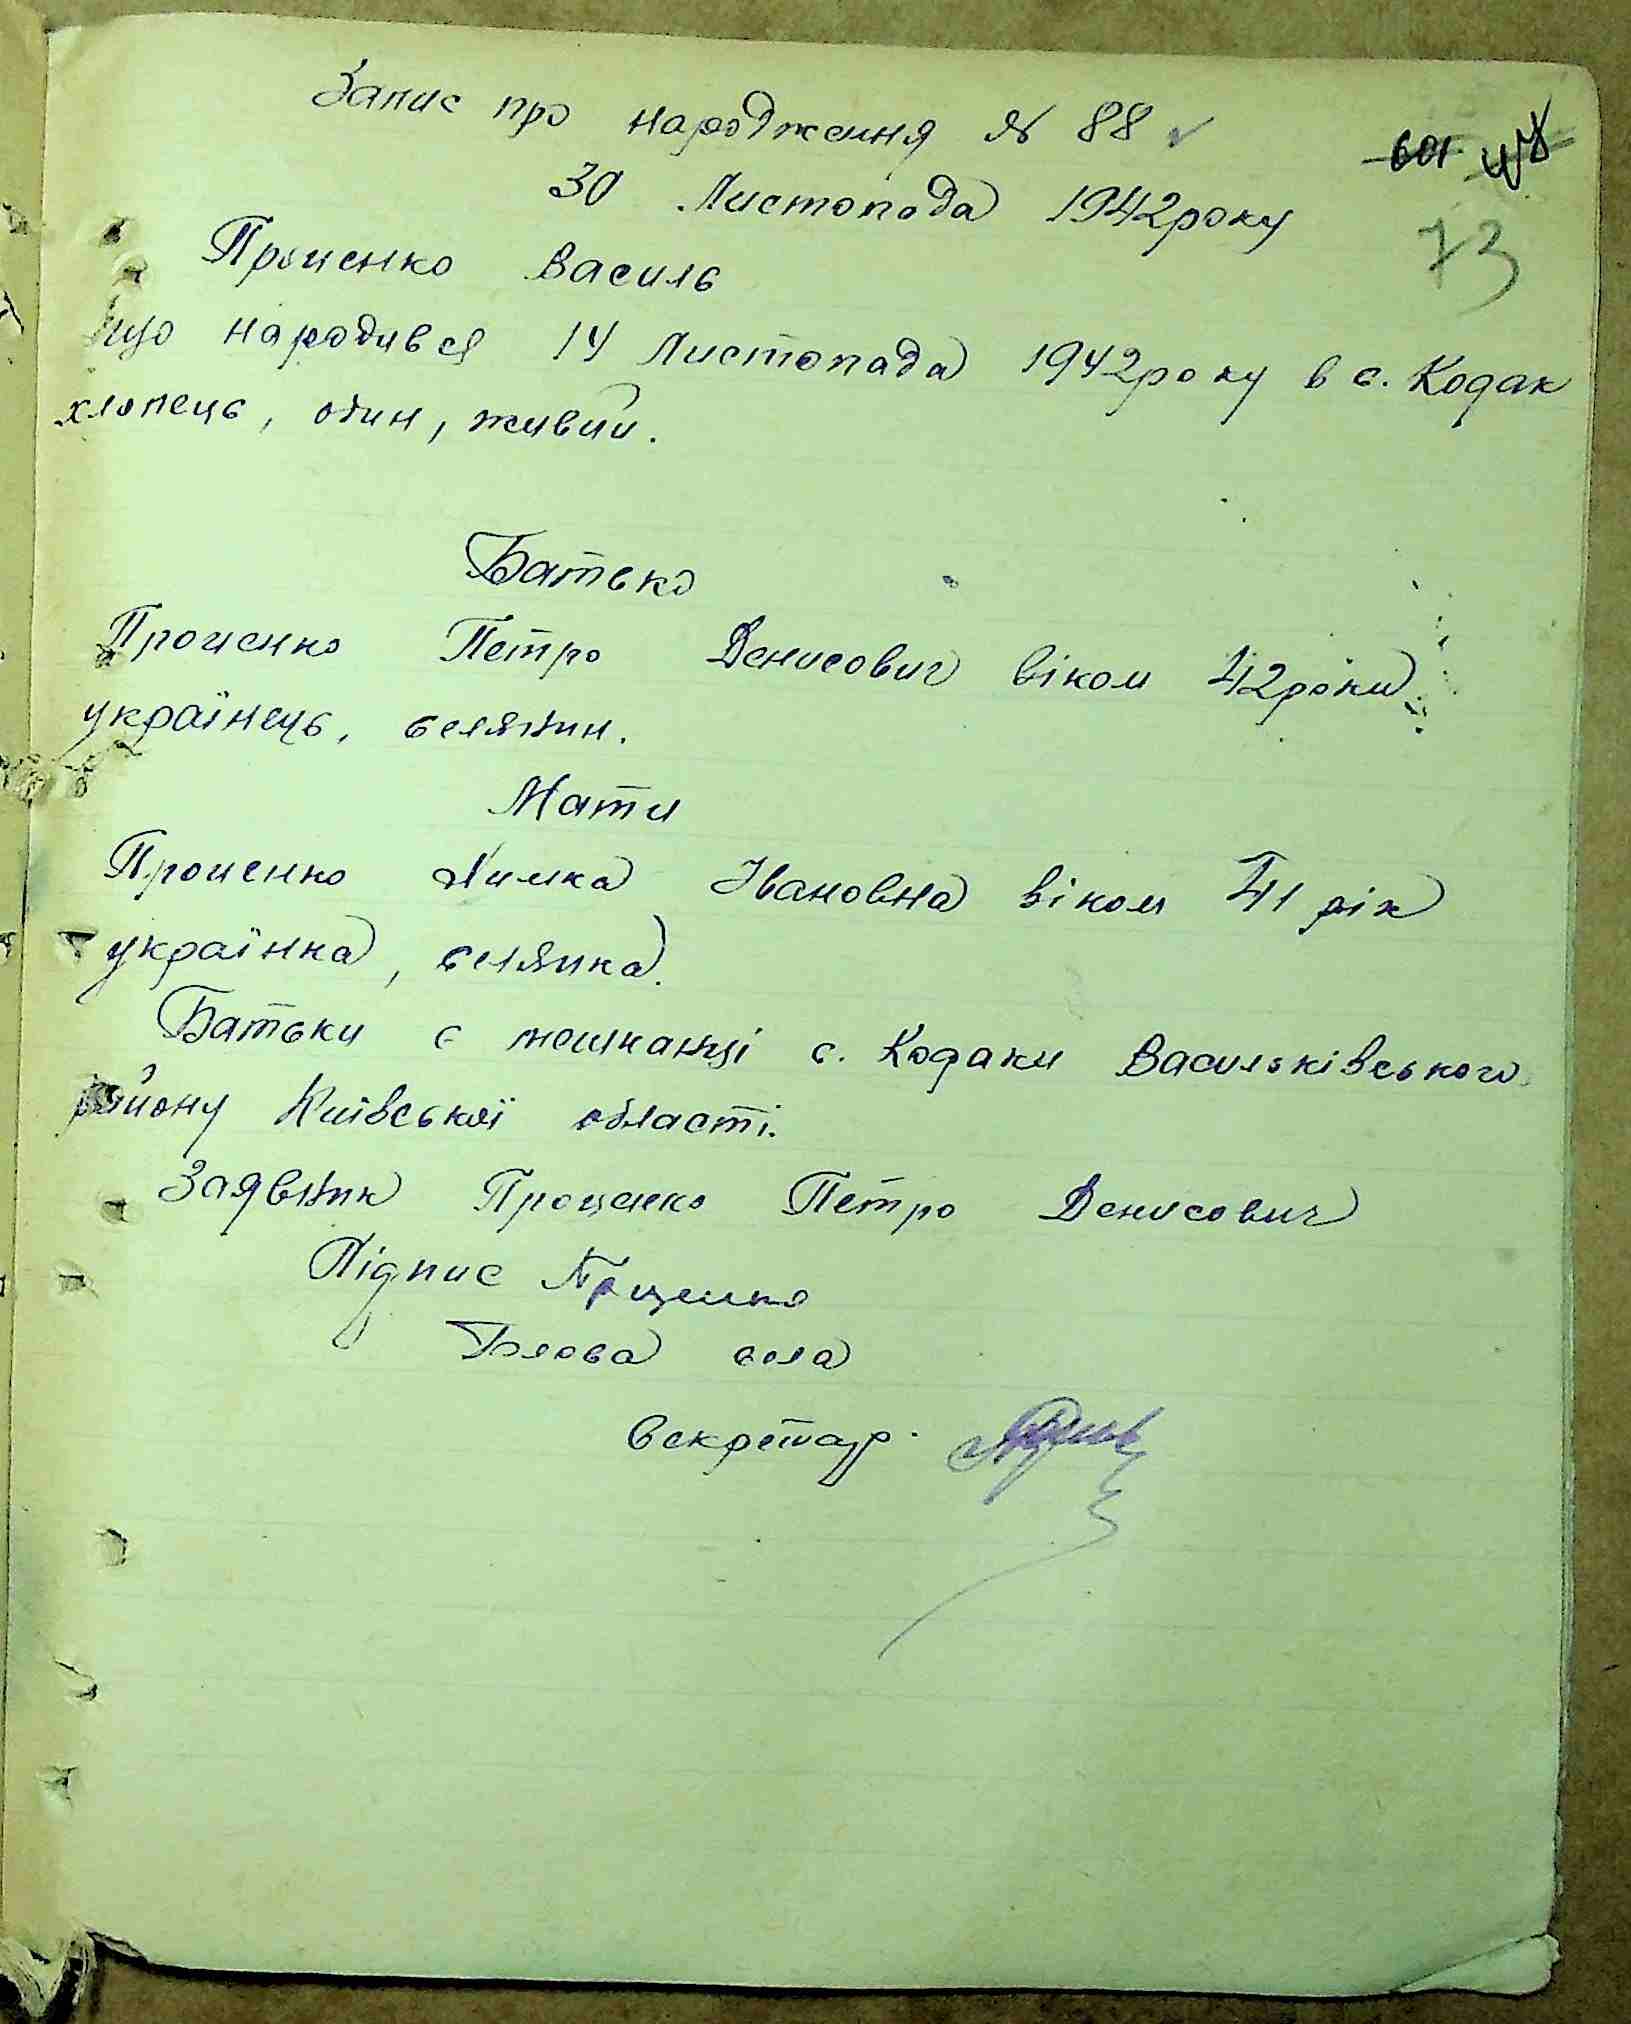 Запис про народження № 88
601
30 Листопада 1942 року
73
Проценко Василь
що народився 14 Листопада 1942 року в с. Кодак
хлопець, один, живий.
Батько
Проценко Петро Денисович віком 42 роки
українець, селянин.
Мати
Проценко Химка Івановна віком 41 рік
українка, селянка.
Батьки є мешканці с. Кодаки Васильківського
району Київської області.
Заявник Проценко Петро Денисович
Підпис Проценко
Голова села
Секретар